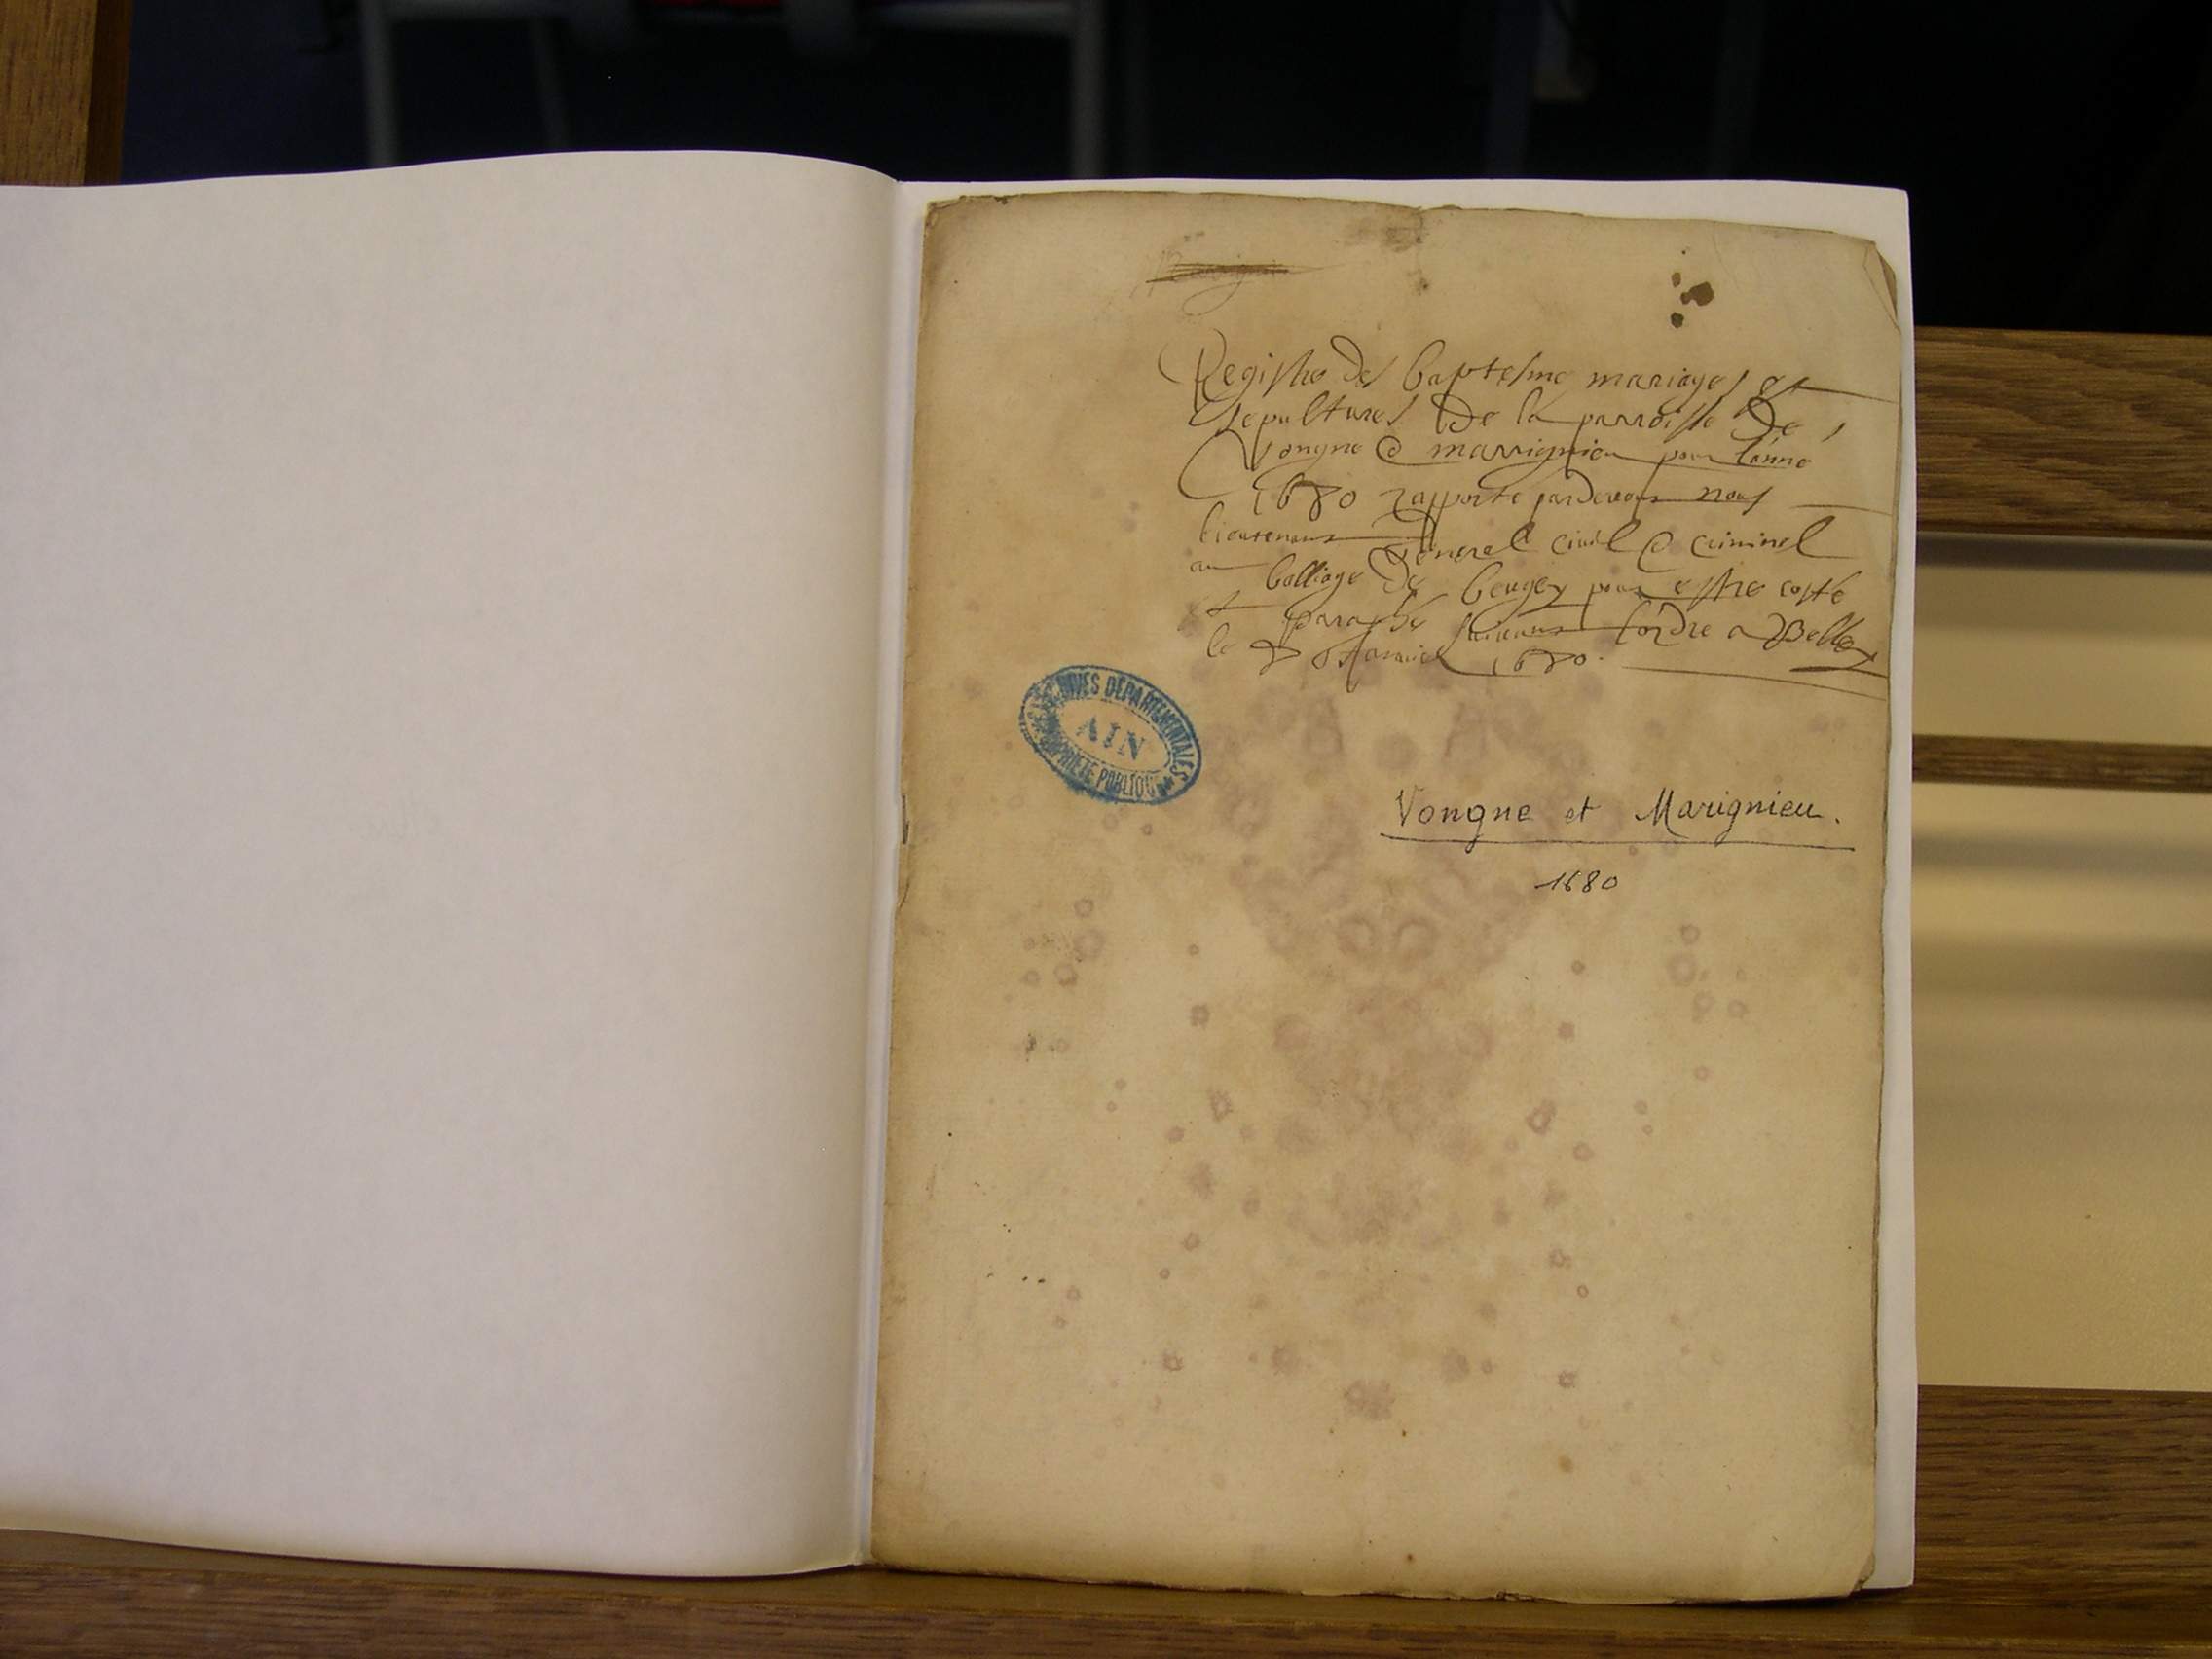 Registre des baptesme mariages et
sepultures de la parroisse de
Vongne @ marrignieu pour lanne
1680 rapporte pardevant nous
lieutenant general civil @ criminel
au balliage de beugey pour estre cotté
et parraphé suivant lordre a Belley
le janvier 1680.
ARCHIVES DÉPARTEMENTALES
AIN
PROPRIÉTÉ PUBLIQUE
Vongne et Marignieu.
1680